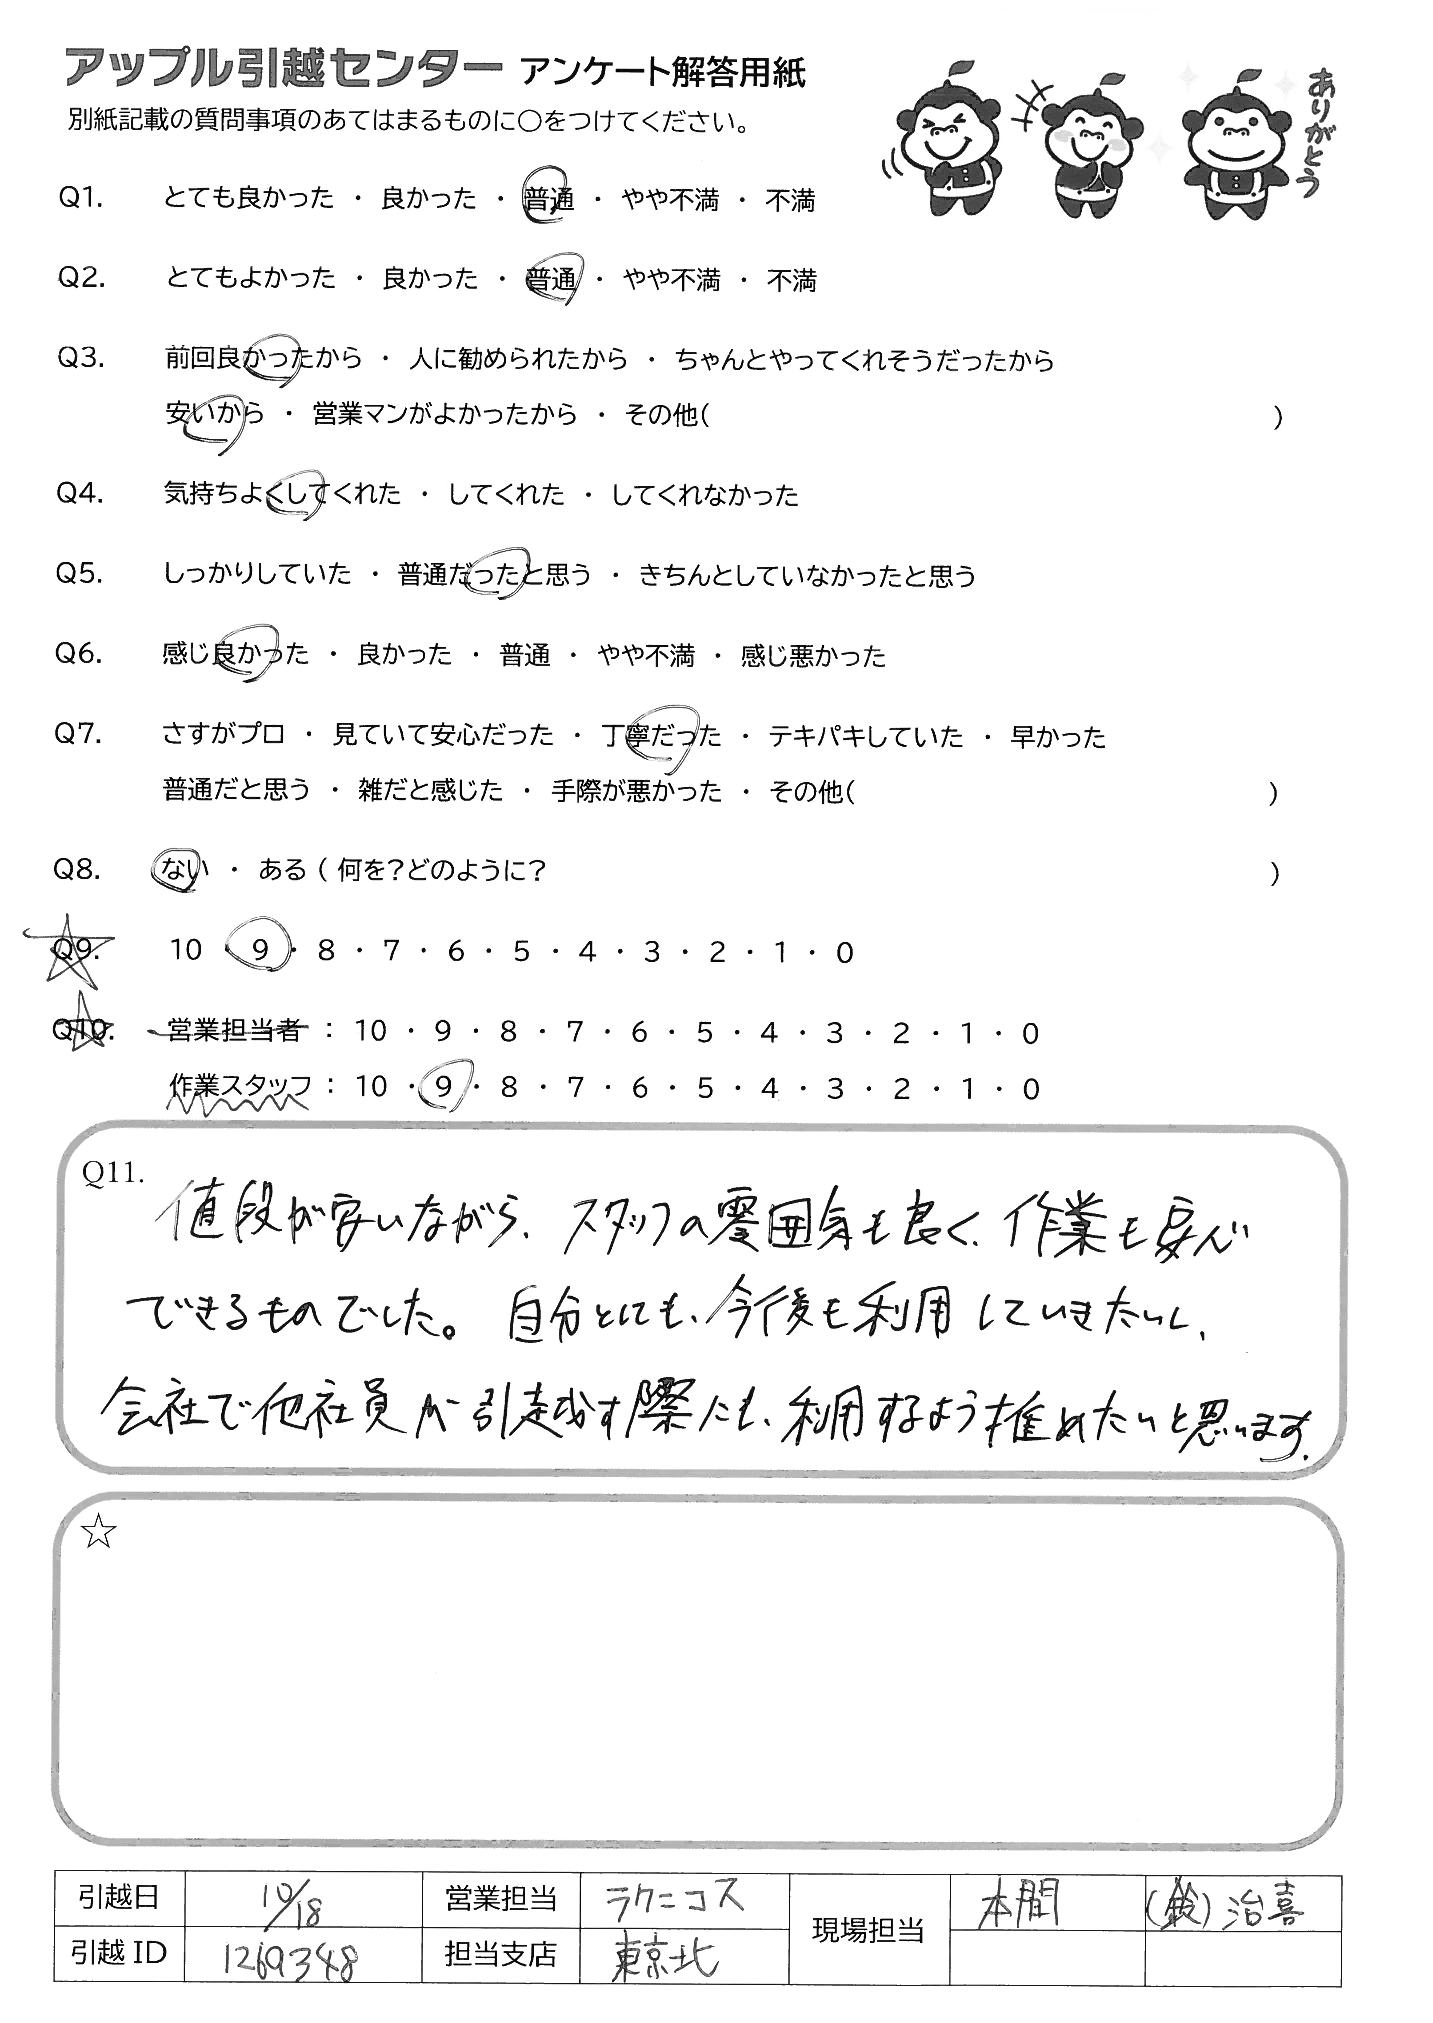 アップル引越センター アンケート解答用紙
別紙記載の質問事項のあてはまるものに○をつけてください。
ありがとう
Q1. とても良かった ・ 良かった ・ 普通 ・ やや不満 ・ 不満
Q2. とてもよかった ・ 良かった ・ 普通 ・ やや不満 ・ 不満
Q3. 前回良かったから ・ 人に勧められたから ・ ちゃんとやってくれそうだったから
安いから ・ 営業マンがよかったから ・ その他( )
Q4. 気持ちよくしてくれた ・ してくれた ・ してくれなかった
Q5. しっかりしていた ・ 普通だったと思う ・ きちんとしていなかったと思う
Q6. 感じ良かった ・ 良かった ・ 普通 ・ やや不満 ・ 感じ悪かった
Q7. さすがプロ ・ 見ていて安心だった ・ 丁寧だった ・ テキパキしていた ・ 早かった
普通だと思う ・ 雑だと感じた ・ 手際が悪かった ・ その他( )
Q8. ない ・ ある ( 何を?どのように? )
Q9. 10 ・ 9 ・ 8 ・ 7 ・ 6 ・ 5 ・ 4 ・ 3 ・ 2 ・ 1 ・ 0
Q10. 営業担当者 : 10 ・ 9 ・ 8 ・ 7 ・ 6 ・ 5 ・ 4 ・ 3 ・ 2 ・ 1 ・ 0
作業スタッフ : 10 ・ 9 ・ 8 ・ 7 ・ 6 ・ 5 ・ 4 ・ 3 ・ 2 ・ 1 ・ 0
Q11.
値段が安いながら、スタッフの雰囲気も良く、作業も安心
できるものでした。自分とにも、今後も利用していきたいし、
会社で他社員が引越す際にも、利用するよう推めたいと思います。
☆
引越日 10/18 営業担当 ラクニコス 現場担当 本間 (鈴)治喜
引越ID 1269348 担当支店 東京北